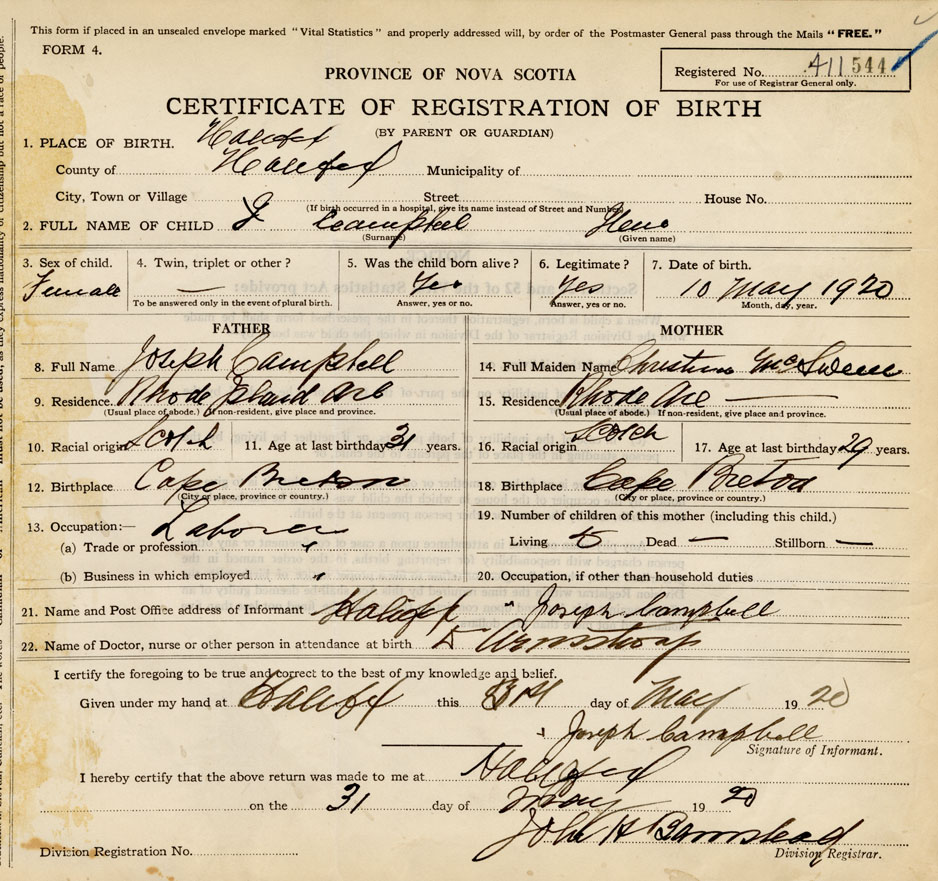 This form if placed in an unsealed envelope marked "Vital Statistics" and properly addressed will, by order of the Postmaster General pass through the Mails "FREE."
FORM 4.
PROVINCE OF NOVA SCOTIA
Registered No. 411544
For use of Registrar General only.
CERTIFICATE OF REGISTRATION OF BIRTH
(BY PARENT OR GUARDIAN)
1. PLACE OF BIRTH. Halifax
County of Halifax Municipality of
City, Town or Village Street House No.
(If birth occurred in a hospital, give its name instead of Street and Number)
2. FULL NAME OF CHILD Campbell
(Surname) (Given name)
3. Sex of child. 4. Twin, triplet or other? 5. Was the child born alive? 6. Legitimate? 7. Date of birth.
Female — Yes Yes 10 May 1920
To be answered only in the event of plural birth. Answer, yes or no. Answer, yes or no. Month, day, year.
FATHER MOTHER
8. Full Name Joseph Campbell 14. Full Maiden Name
9. Residence. Rhode Island 15. Residence Rhode
(Usual place of abode.) If non-resident, give place and province. (Usual place of abode.) If non-resident, give place and province.
10. Racial origin Scotch 11. Age at last birthday 31 years. 16. Racial origin Scotch 17. Age at last birthday 29 years.
12. Birthplace Cape Breton 18. Birthplace Cape Breton
(City or place, province or country.) (City or place, province or country.)
13. Occupation:— Laborer 19. Number of children of this mother (including this child.)
(a) Trade or profession Living 5 Dead — Stillborn —
(b) Business in which employed 20. Occupation, if other than household duties
21. Name and Post Office address of Informant Halifax Joseph Campbell
22. Name of Doctor, nurse or other person in attendance at birth Armstrong
I certify the foregoing to be true and correct to the best of my knowledge and belief.
Given under my hand at Halifax this day of May 1920
Joseph Campbell
Signature of Informant.
I hereby certify that the above return was made to me at Halifax
on the 31 day of May 1920
John H Barnstead
Division Registration No. Division Registrar.